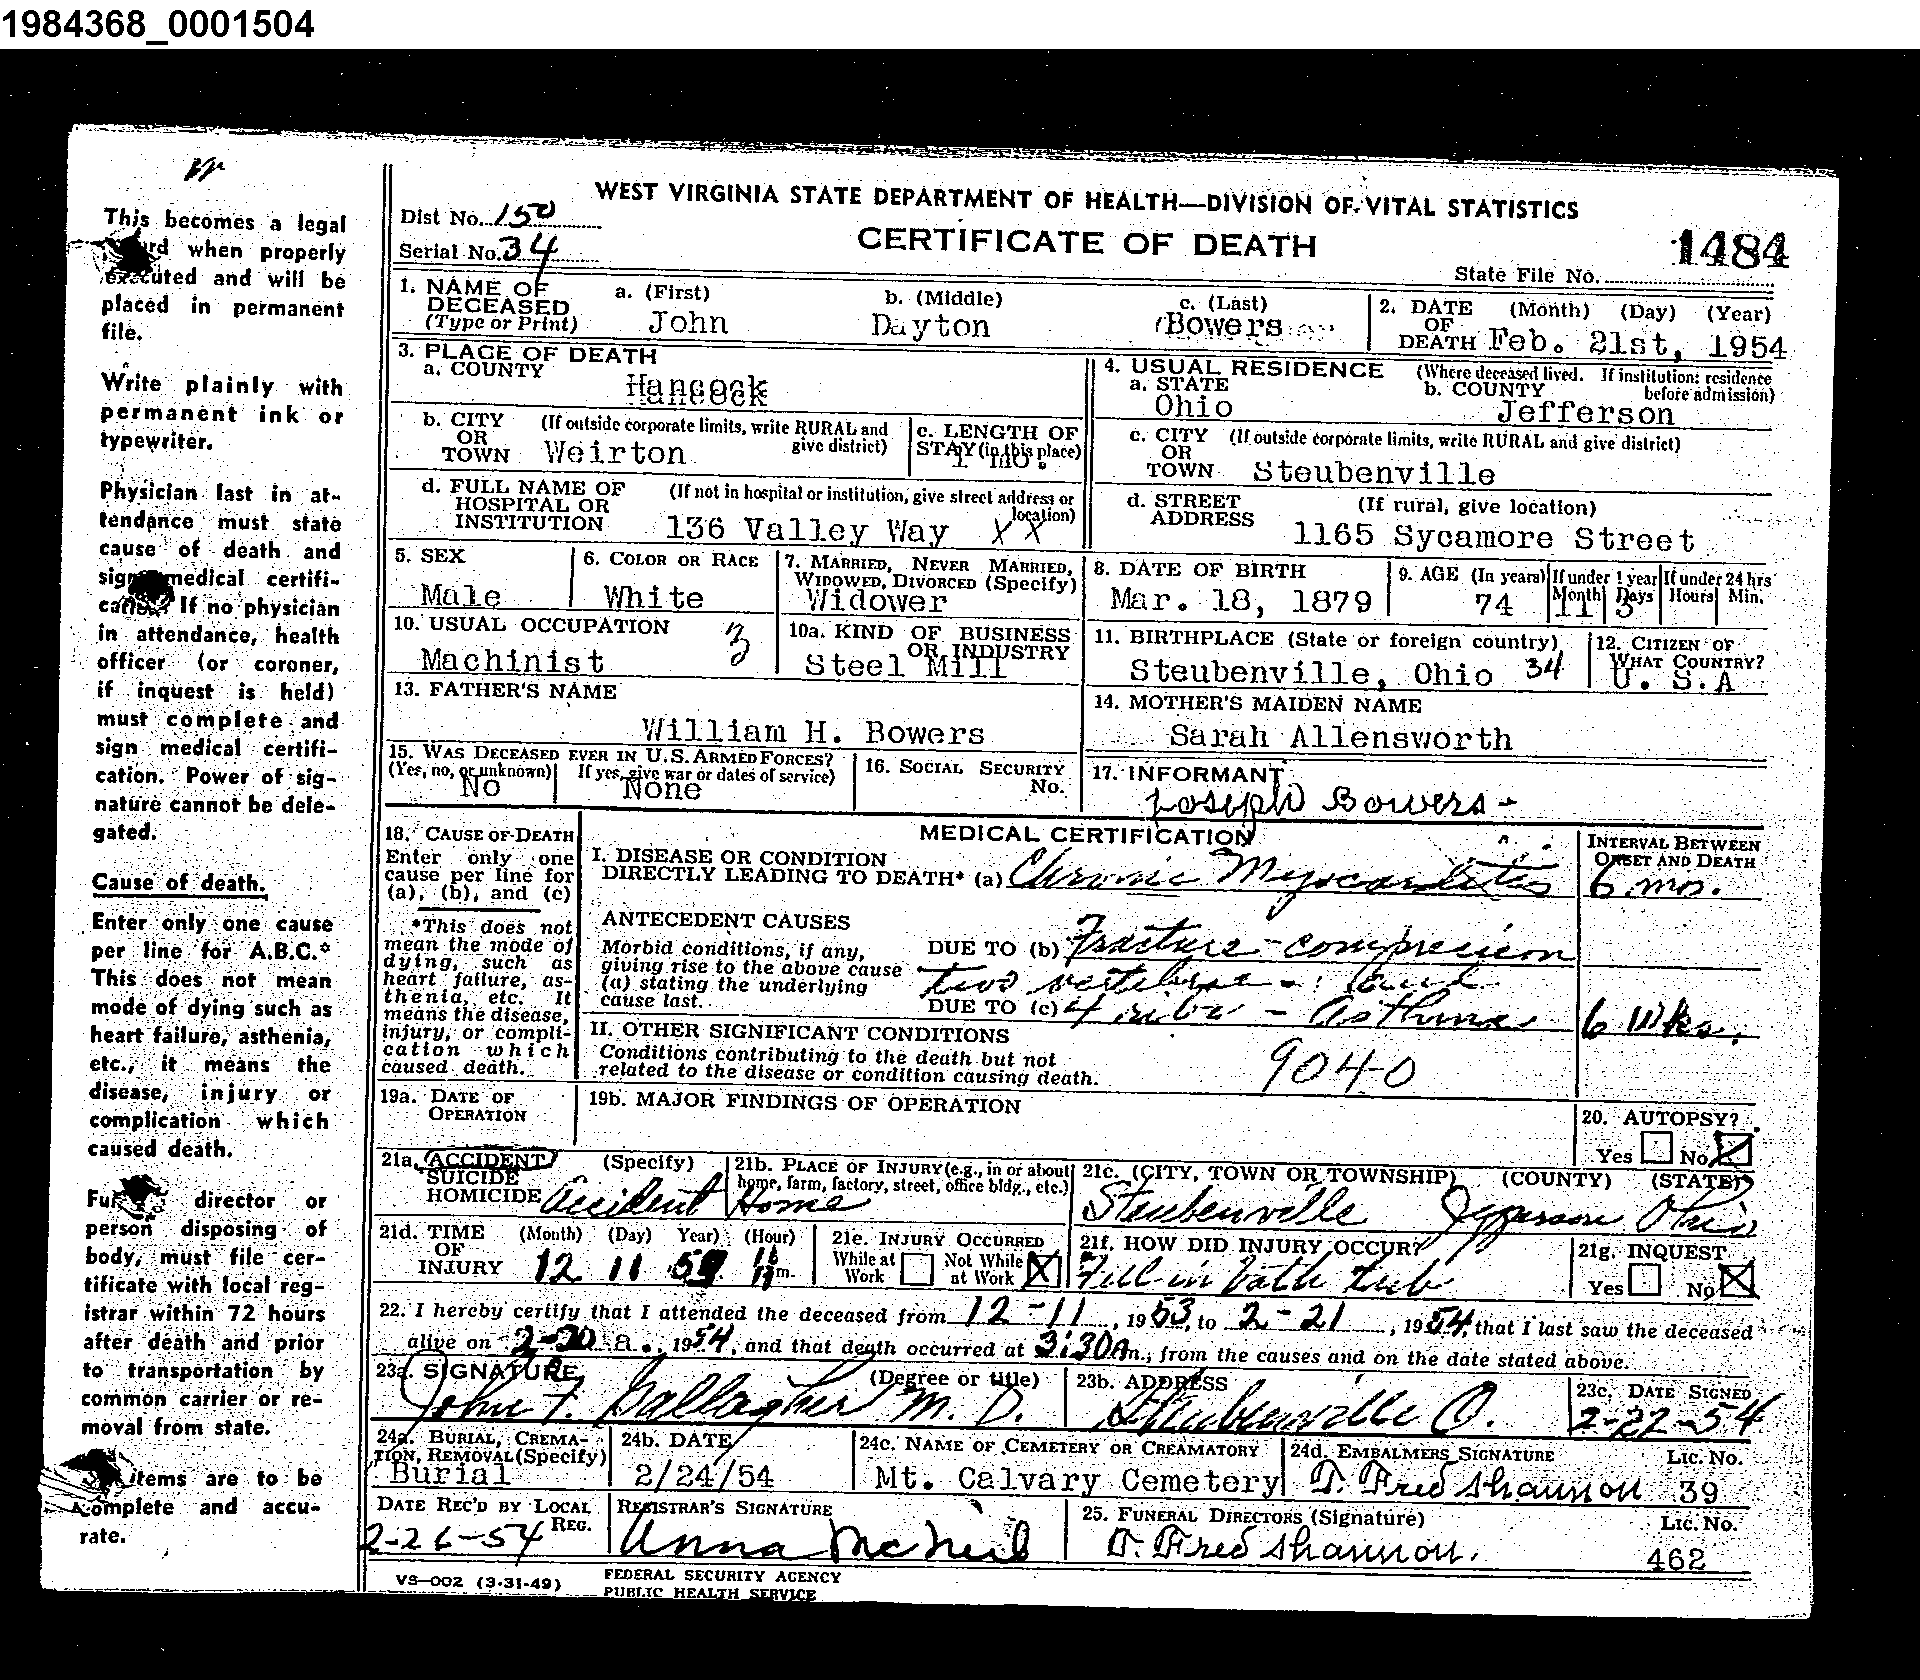 1984368_0001504
This becomes a legal
when properly
executed and will be
placed in permanent
file.
Write plainly with
permanent ink or
typewriter.
Physician last in at-
tendance must state
cause of death and
sign medical certifi-
If no physician
in attendance, health
officer (or coroner,
if inquest is held)
must complete and
sign medical certifi-
cation. Power of sig-
nature cannot be dele-
gated.
Cause of death.
Enter only one cause
per line for A.B.C.*
This does not mean
mode of dying such as
heart failure, asthenia,
etc., it means the
disease, injury or
complication which
caused death.
director or
person disposing of
body, must file cer-
tificate with local reg-
istrar within 72 hours
after death and prior
to transportation by
common carrier or re-
moval from state.
items are to be
complete and accu-
rate.
WEST VIRGINIA STATE DEPARTMENT OF HEALTH—DIVISION OF VITAL STATISTICS
Dist No. 150
CERTIFICATE OF DEATH
Serial No. 34
1484
State File No.
1. NAME OF DECEASED (Type or Print)
a. (First) John
b. (Middle) Dayton
c. (Last) Bowers
2. DATE OF DEATH (Month) (Day) (Year)
Feb. 21st, 1954
3. PLACE OF DEATH
a. COUNTY Hancock
b. CITY OR TOWN (If outside corporate limits, write RURAL and give district)
Weirton
c. LENGTH OF STAY (in this place)
1 mo.
d. FULL NAME OF HOSPITAL OR INSTITUTION (If not in hospital or institution, give street address or location)
136 Valley Way XX
4. USUAL RESIDENCE (Where deceased lived. If institution: residence before admission)
a. STATE Ohio
b. COUNTY Jefferson
c. CITY OR TOWN (If outside corporate limits, write RURAL and give district)
Steubenville
d. STREET ADDRESS (If rural, give location)
1165 Sycamore Street
5. SEX Male
6. COLOR OR RACE White
7. MARRIED, NEVER MARRIED, WIDOWED, DIVORCED (Specify)
Widower
8. DATE OF BIRTH
Mar. 18, 1879
9. AGE (In years) 74
If under 1 year Month 11 Days 3
If under 24 hrs Hours Min.
10. USUAL OCCUPATION 3
Machinist
10a. KIND OF BUSINESS OR INDUSTRY
Steel Mill
11. BIRTHPLACE (State or foreign country)
Steubenville, Ohio 34
12. CITIZEN OF WHAT COUNTRY?
U. S.A
13. FATHER'S NAME
William H. Bowers
14. MOTHER'S MAIDEN NAME
Sarah Allensworth
15. WAS DECEASED EVER IN U.S. ARMED FORCES?
(Yes, no, or unknown) If yes, give war or dates of service)
No None
16. SOCIAL SECURITY No.
17. INFORMANT
Joseph Bowers
18. CAUSE OF DEATH
Enter only one
cause per line for
(a), (b), and (c)
*This does not
mean the mode of
dying, such as
heart failure, as-
thenia, etc. It
means the disease,
injury, or compli-
cation which
caused death.
MEDICAL CERTIFICATION
INTERVAL BETWEEN ONSET AND DEATH
I. DISEASE OR CONDITION
DIRECTLY LEADING TO DEATH* (a) Chronic Myocarditis 6 mos.
ANTECEDENT CAUSES
Morbid conditions, if any,
giving rise to the above cause
(a) stating the underlying
cause last.
DUE TO (b) Fracture - compression
two vertebrae - and
DUE TO (c) 4 ribs - Asthma 6 wks.
II. OTHER SIGNIFICANT CONDITIONS
Conditions contributing to the death but not
related to the disease or condition causing death.
9040
19a. DATE OF OPERATION
19b. MAJOR FINDINGS OF OPERATION
20. AUTOPSY?
Yes No X
21a. ACCIDENT SUICIDE HOMICIDE (Specify)
Accident
21b. PLACE OF INJURY (e.g., in or about home, farm, factory, street, office bldg., etc.)
Home
21c. (CITY, TOWN OR TOWNSHIP) (COUNTY) (STATE)
Steubenville Jefferson Ohio
21d. TIME OF INJURY (Month) (Day) Year) (Hour)
12 11 m.
21e. INJURY OCCURRED
While at Work Not While at Work X
21f. HOW DID INJURY OCCUR?
Fell in bath tub
21g. INQUEST
Yes No X
22. I hereby certify that I attended the deceased from 12-11, 1953, to 2-21, 1954, that I last saw the deceased
alive on 2-20 a., 1954, and that death occurred at 3:30A m., from the causes and on the date stated above.
23a. SIGNATURE (Degree or title)
John F. Gallagher M. D.
23b. ADDRESS
Steubenville O.
23c. DATE SIGNED
2-22-54
24a. BURIAL, CREMATION, REMOVAL (Specify)
Burial
24b. DATE
2/24/54
24c. NAME OF CEMETERY OR CREAMATORY
Mt. Calvary Cemetery
24d. EMBALMERS SIGNATURE Lic. No.
T. Fred Shannon 39
DATE REC'D BY LOCAL REG.
2-26-54
REGISTRAR'S SIGNATURE
Anna McNeil
25. FUNERAL DIRECTORS (Signature) Lic. No.
T. Fred Shannon. 462
VS—002 (3-31-49)
FEDERAL SECURITY AGENCY
PUBLIC HEALTH SERVICE